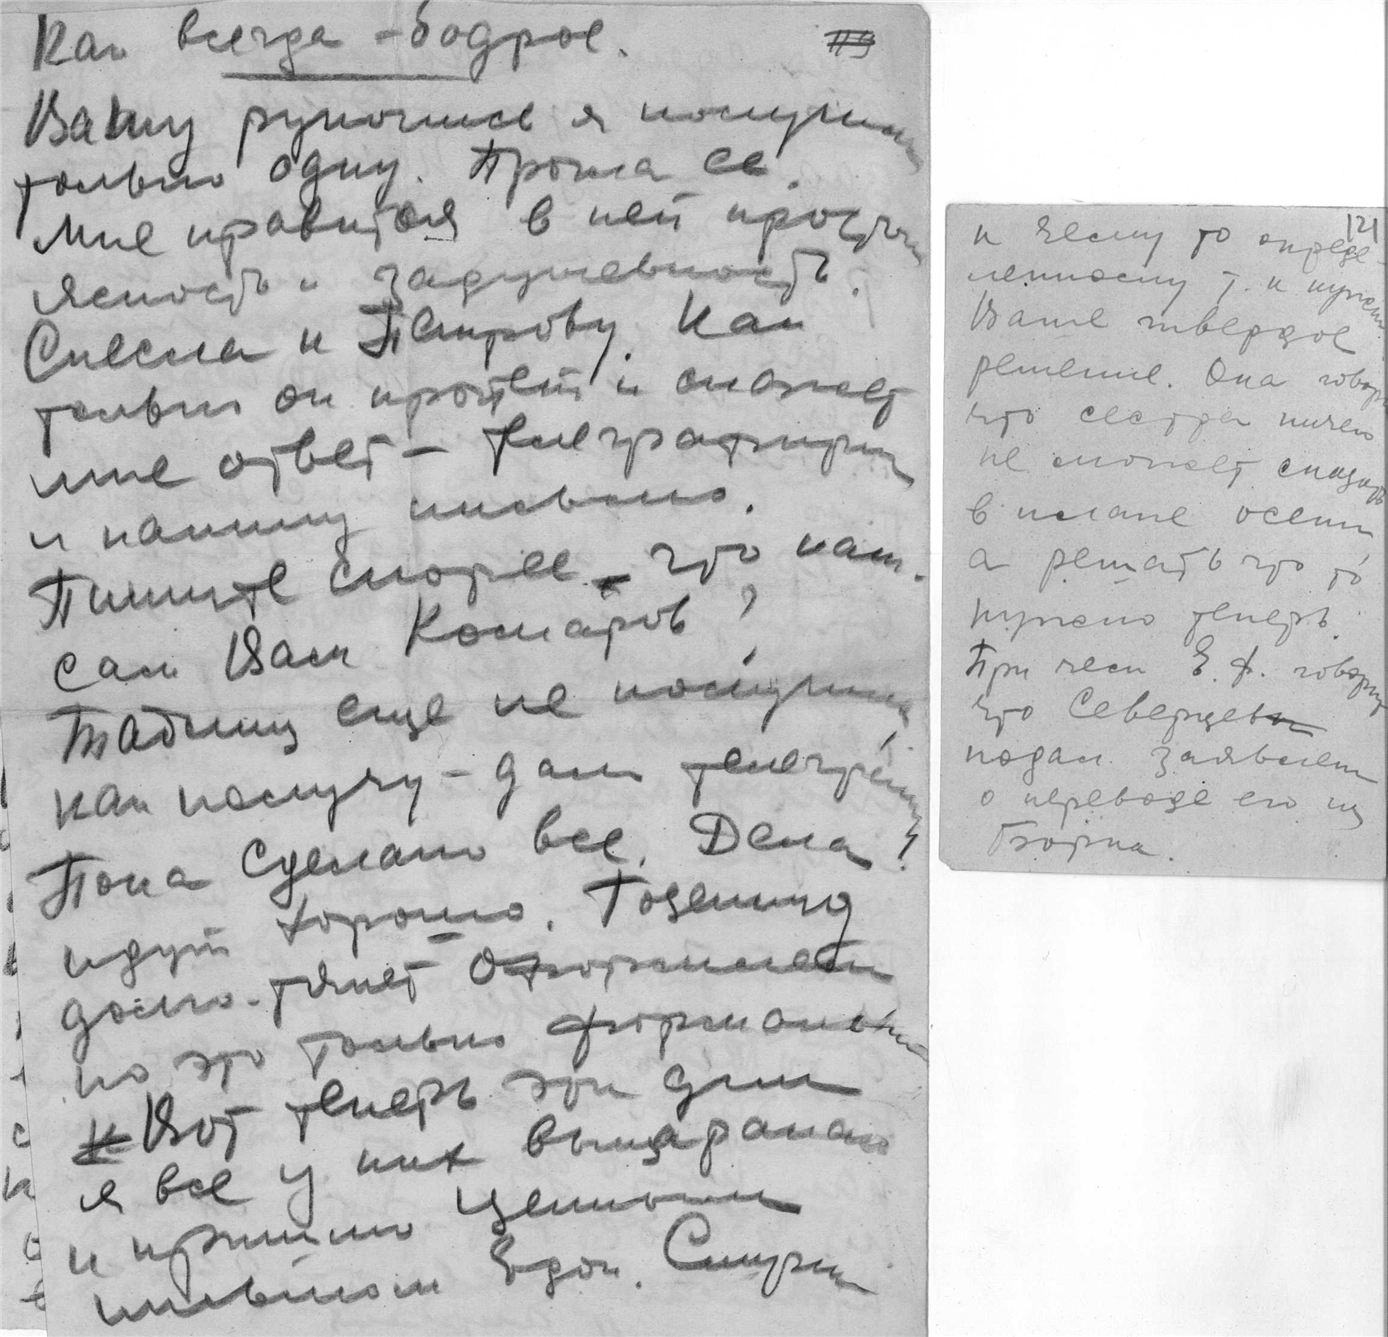 Как всегда – бодрое.
119
Вашу рукопись я получила
только одну. Прочла ее.
Мне нравится в ней простота
ясность и задушевность.
Снесла к Петрову. Как
только он прочтет и скажет
мне ответ – телеграфирую
и напишу письмо.
Пишите скорее – что напи-
сал Вам Комаров?
Таблиц еще не получила,
как получу – дам телеграмму.
Пока сделано все. Дела
идут хорошо.
долго тянет
но это только формально
Вот теперь эти дни
я все у них выцарапаю
и пришлю ценным
письмом
121
к чему то опреде-
ленному т. к нужно
Ваше твердое
решение. Она говорит
что сестра ничего
не может сказать
в плане осени,
а решать что то
нужно теперь.
При чем Е. Ф. говорит
что Северцев
подал заявление
о переводе его из
Борка.